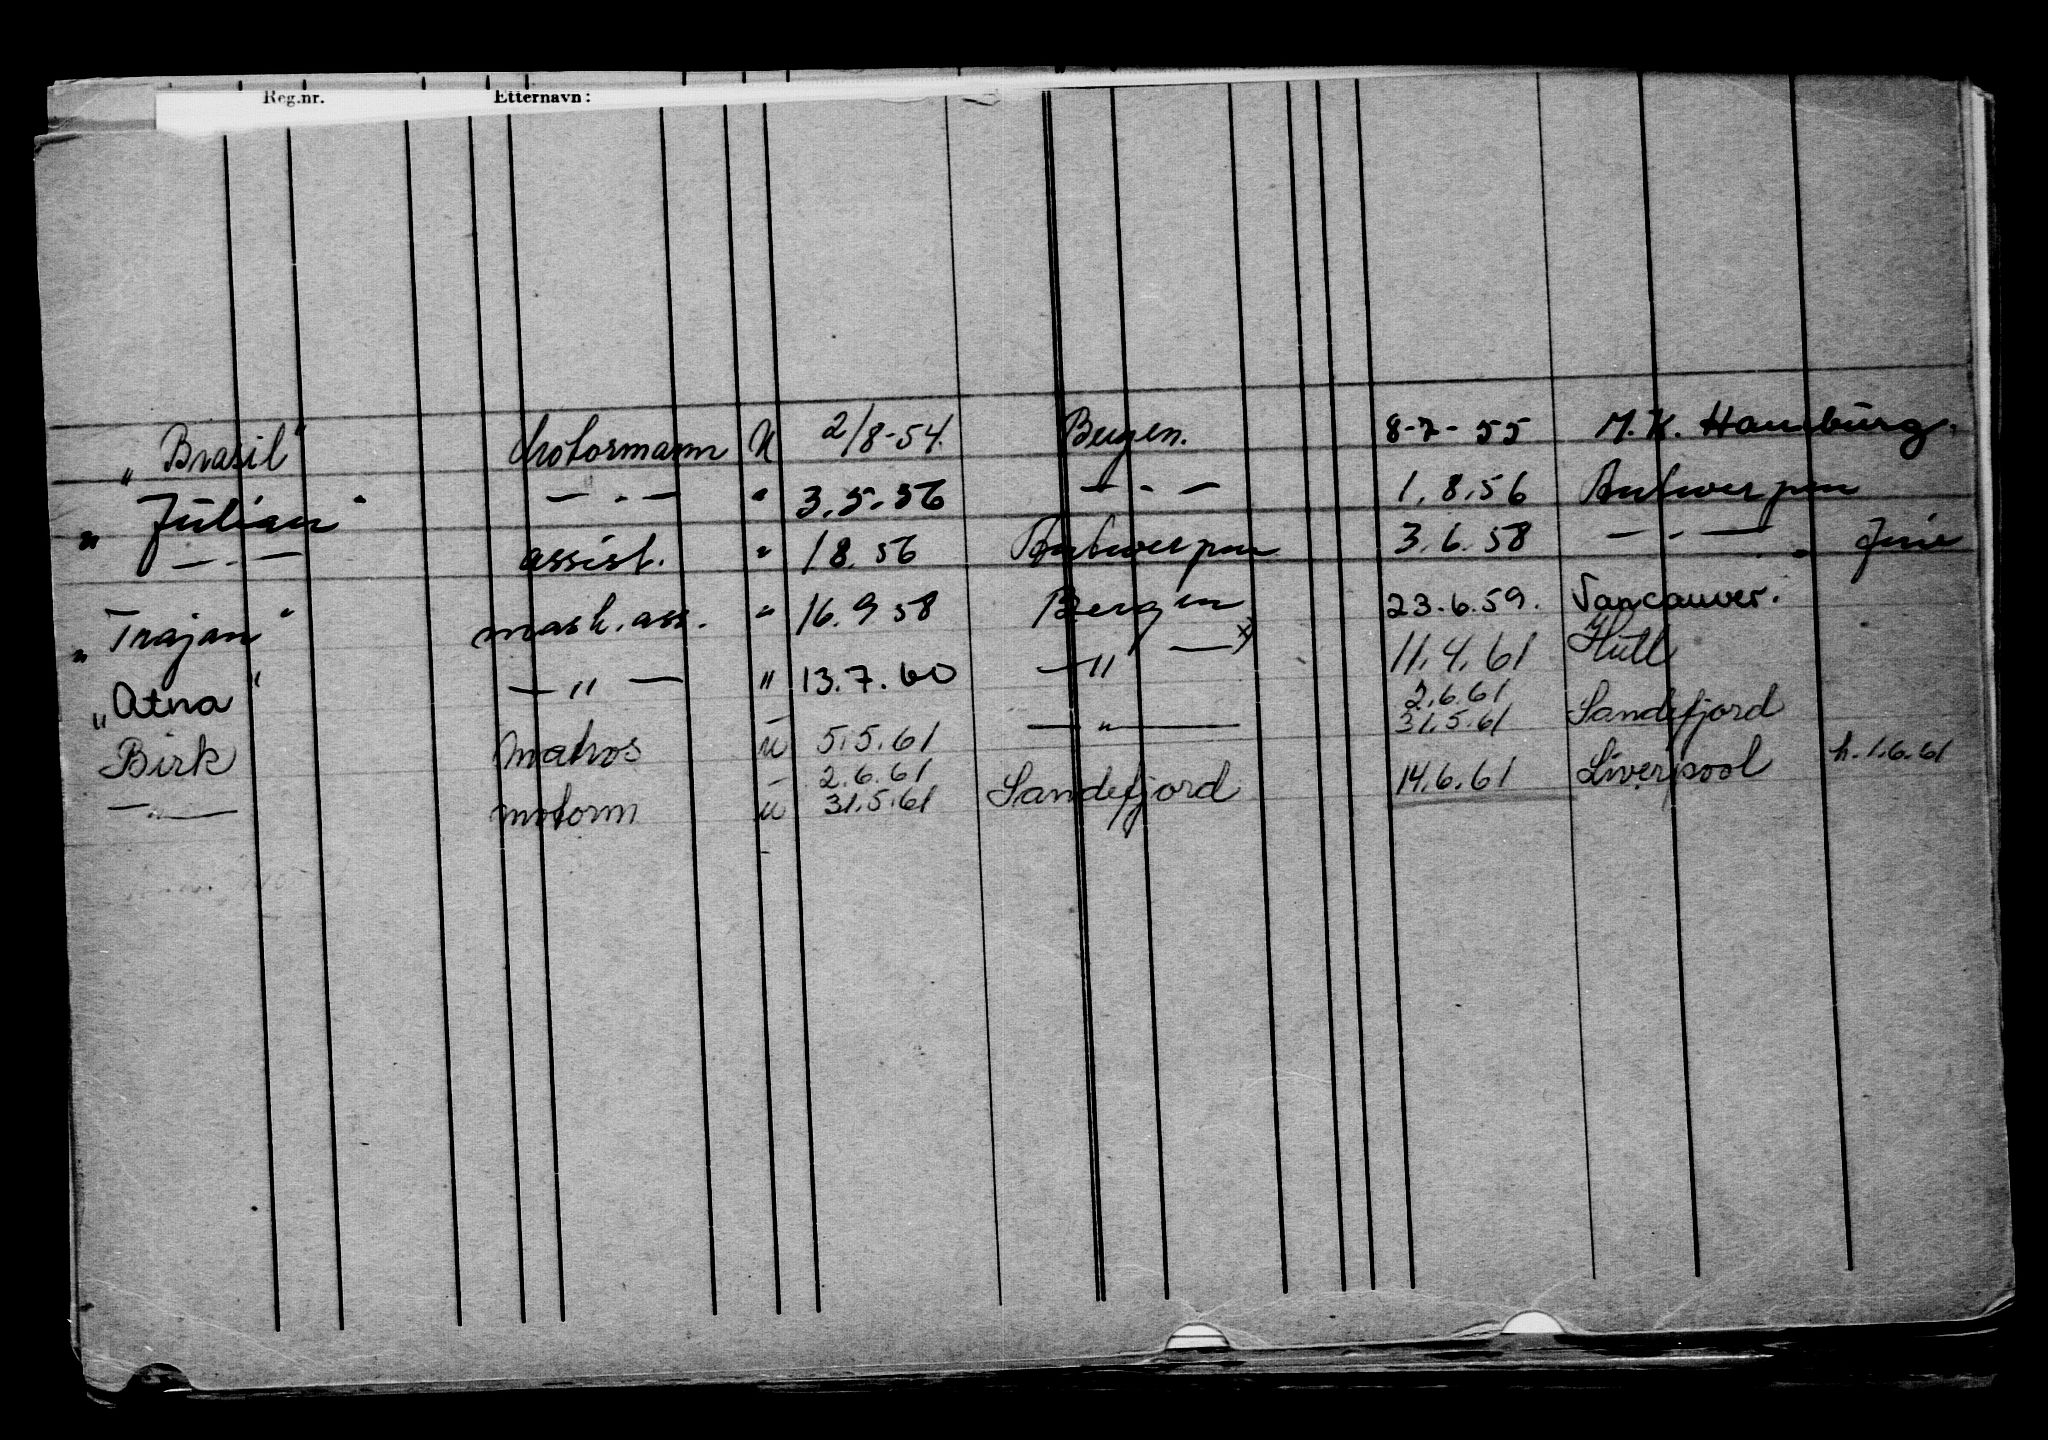 Reg.nr. Etternavn:
„Brasil" Motormann U 2/8-54. Bergen. 8-7-55 M.K. Hamburg.
„Julian" — " — " 3.5.56 — " — 1.8.56 Antwerpen
— " — assist. " 1 8. 56 Antwerpen 3.6.58 — " —
„Trajan" mask. ass. " 16.9 58 Bergen 23.6.59. Vancauver.
„Atna" — " — " 13.7.60 — " — x) 11.4.61 Hull
2.6.61
Birk Matros u 5.5.61 — " — 31.5.61 Sandefjord
2.6.61
— " — motorm u 31.5.61 Sandefjord 14.6.61 Liverpool h. 1.6.61